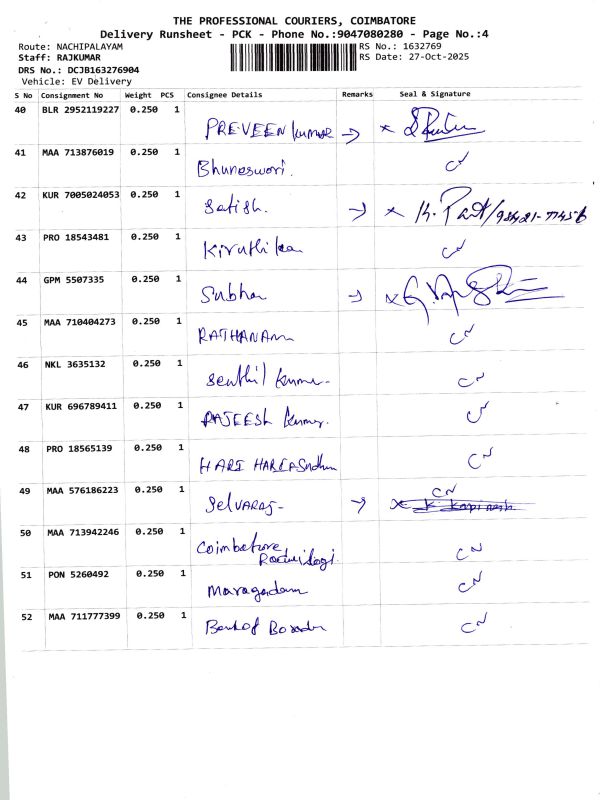 THE PROFESSIONAL COURIERS, COIMBATORE
Delivery Runsheet - PCK - Phone No.:9047080280 - Page No.:4
Route: NACHIPALAYAM RS No.: 1632769
Staff: RAJKUMAR RS Date: 27-Oct-2025
DRS No.: DCJB163276904
Vehicle: EV Delivery
S No Consignment No Weight PCS Consignee Details Remarks Seal & Signature
40 BLR 2952119227 0.250 1
PREVEEN Kumar → x
41 MAA 713876019 0.250 1
Bhuneswori. CN
42 KUR 7005024053 0.250 1
Satish. → x K.
43 PRO 18543481 0.250 1
Kiruthika CN
44 GPM 5507335 0.250 1
Subha → x
45 MAA 710404273 0.250 1
RATHANAm CN
46 NKL 3635132 0.250 1
Senthil Kumar CN
47 KUR 696789411 0.250 1
RAJEESH Kumar. CN
48 PRO 18565139 0.250 1
HARI CN
49 MAA 576186223 0.250 1 CN
SelVARAJ - → x K Kapinesh
50 MAA 713942246 0.250 1
Coimbatore CN
51 PON 5260492 0.250 1
Maragadam CN
52 MAA 711777399 0.250 1
Bank of Baroda CN